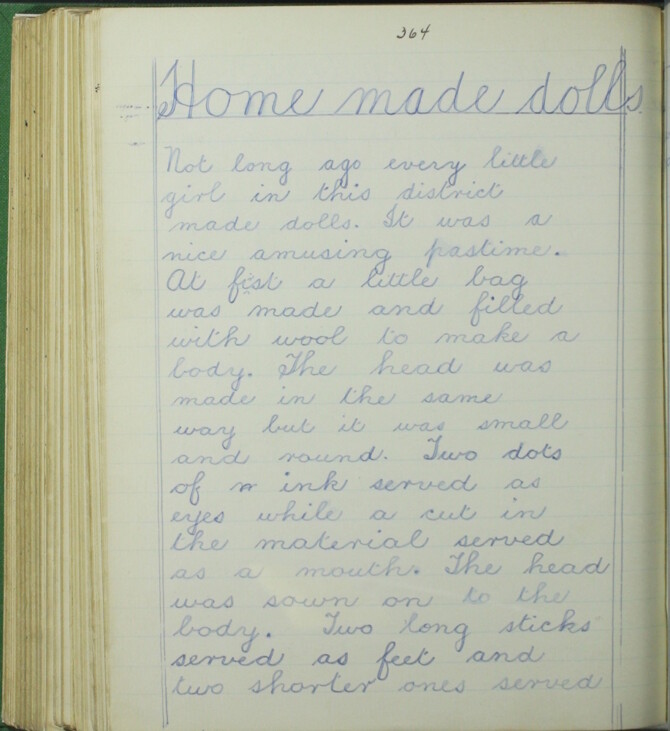 364
Home made dolls
Not long ago every little
girl in this district
made dolls. It was a
nice amusing pastime.
At fist a little bag
was made and filled
with wool to make a
body. The head was
made in the same
way but it was small
and round. Two dots
of ink served as
eyes while a cut in
the material served
as a mouth. The head
was sown on to the
body. Two long sticks
served as feet and
two shorter ones served